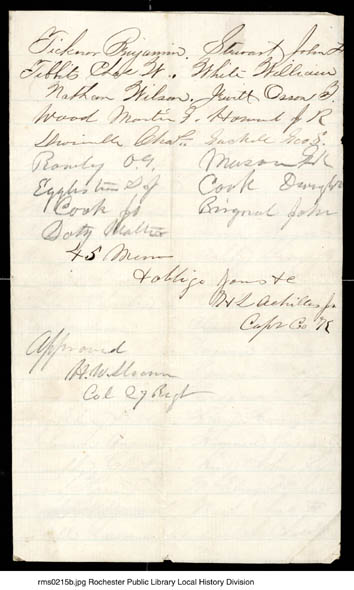 Ticknor Benjamin. Stewart John
Tibbits Chas W., White William
Nathan Wilson. Jewitt Osson
Wood Martin J. Howard J R
Chas. Sackett Geo E.
Rowly O. G. Mason
Eggleston Cook Dwight
Cook Bingnal John
Doty Walter
45 Men
& oblige Yours &c
H L Achilles Jr
Capt Co K
Approved
H. W. Slocum
Col 27 Regt
rms0215b.jpg Rochester Public Library Local History Division